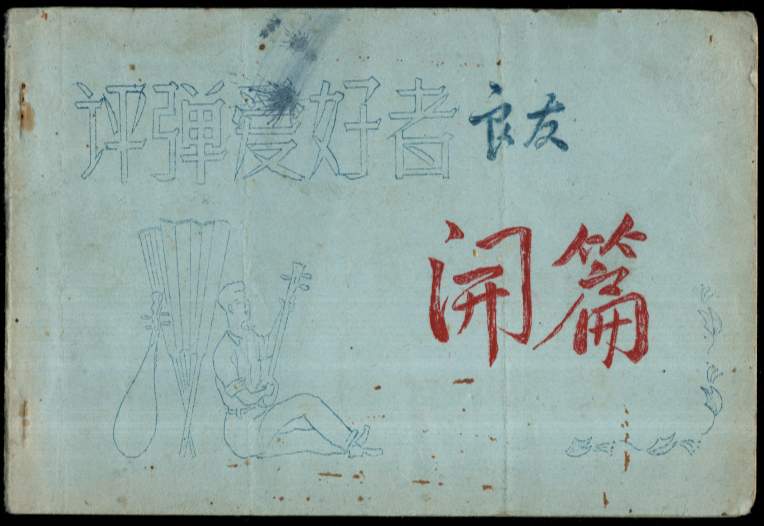 评弹爱好者良友
开篇